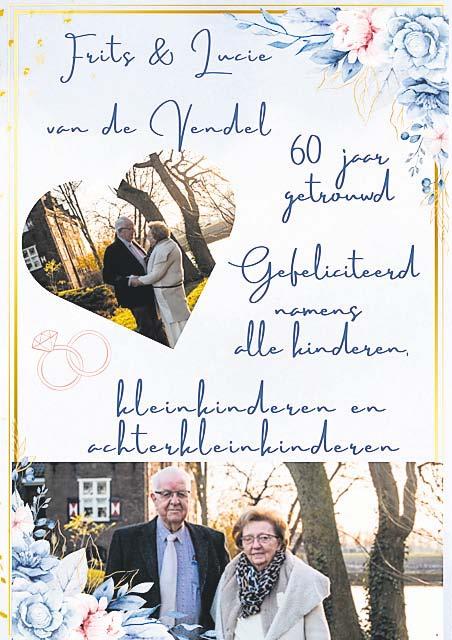 Frits & Lucie
van de Vendel
60 jaar
getrouwd
Gefeliciteerd
namens
alle kinderen,
kleinkinderen en
achterkleinkinderen